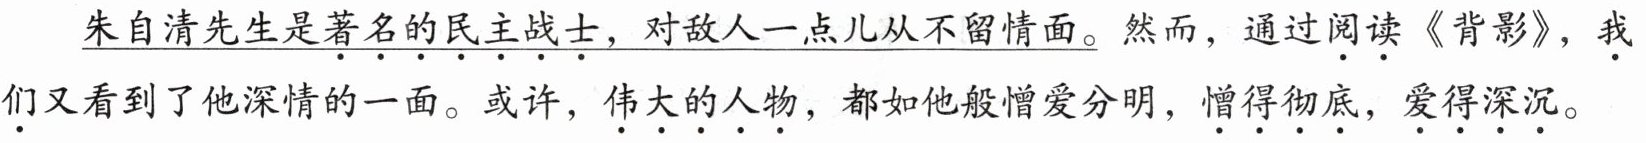 朱自清先生是著名的民主战士，对敌人一点儿从不留情面。然而，通过阅读《背影》，我
们又看到了他深情的一面。或许，伟大的人物，都如他般憎爱分明，憎得彻底，爱得深沉。